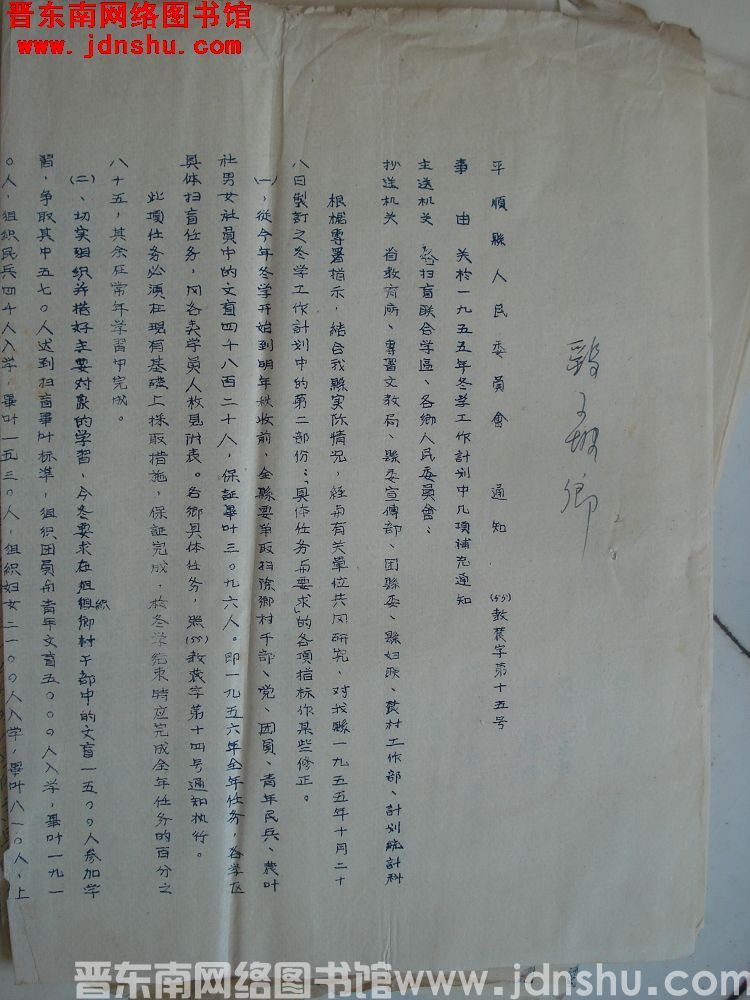 晋东南网络图书馆
www.jdnshu.com
平順縣人民委員會 通知 (55)教農字第十五号
事由 关於一九五五年冬学工作計划中几項補充通知
主送机关 各扫盲联合学區、各鄉人民委員會：
抄送机关 省教育廳、專署文教局、縣委宣傳部、团縣委、縣妇联、農村工作部、計划統計科
根椐專署指示，結合我縣実际情况，經与有关单位共同研究，对我縣一九五五年十月二十
八日製訂之冬学工作計划中的第二部份：“具体任务与要求”的各項指标作某些修正。
(一)、從今年冬学开始到明年秋收前，全縣要争取扫除鄉村干部、党、团員、青年民兵、農叶
社男女社員中的文盲四十八百二十人，保証畢叶三〇九六人。即一九五六年全年任务，各学区
具体扫盲任务，同各类学員人枚見附表。各鄉具体任务，照(55)教農字第十四号通知执行。
此項任务必須在現有基礎上採取措施，保証完成，於冬学結束時应完成全年任务的百分之
八十五，其余在常年学習中完成。
(二)、切实組織并搭好主要对象的学習，今冬要求在組織鄉村干部中的文盲一五〇〇人参加学
習，争取其中五七〇人达到扫盲畢叶标準，組織团員与青年文盲五〇〇〇人入学，畢叶一九一
〇人，組织民兵四千人入学，畢叶一五三〇人，組织妇女二一〇〇人入学，畢叶八一〇人，上
晋东南网络图书馆www.jdnshu.com